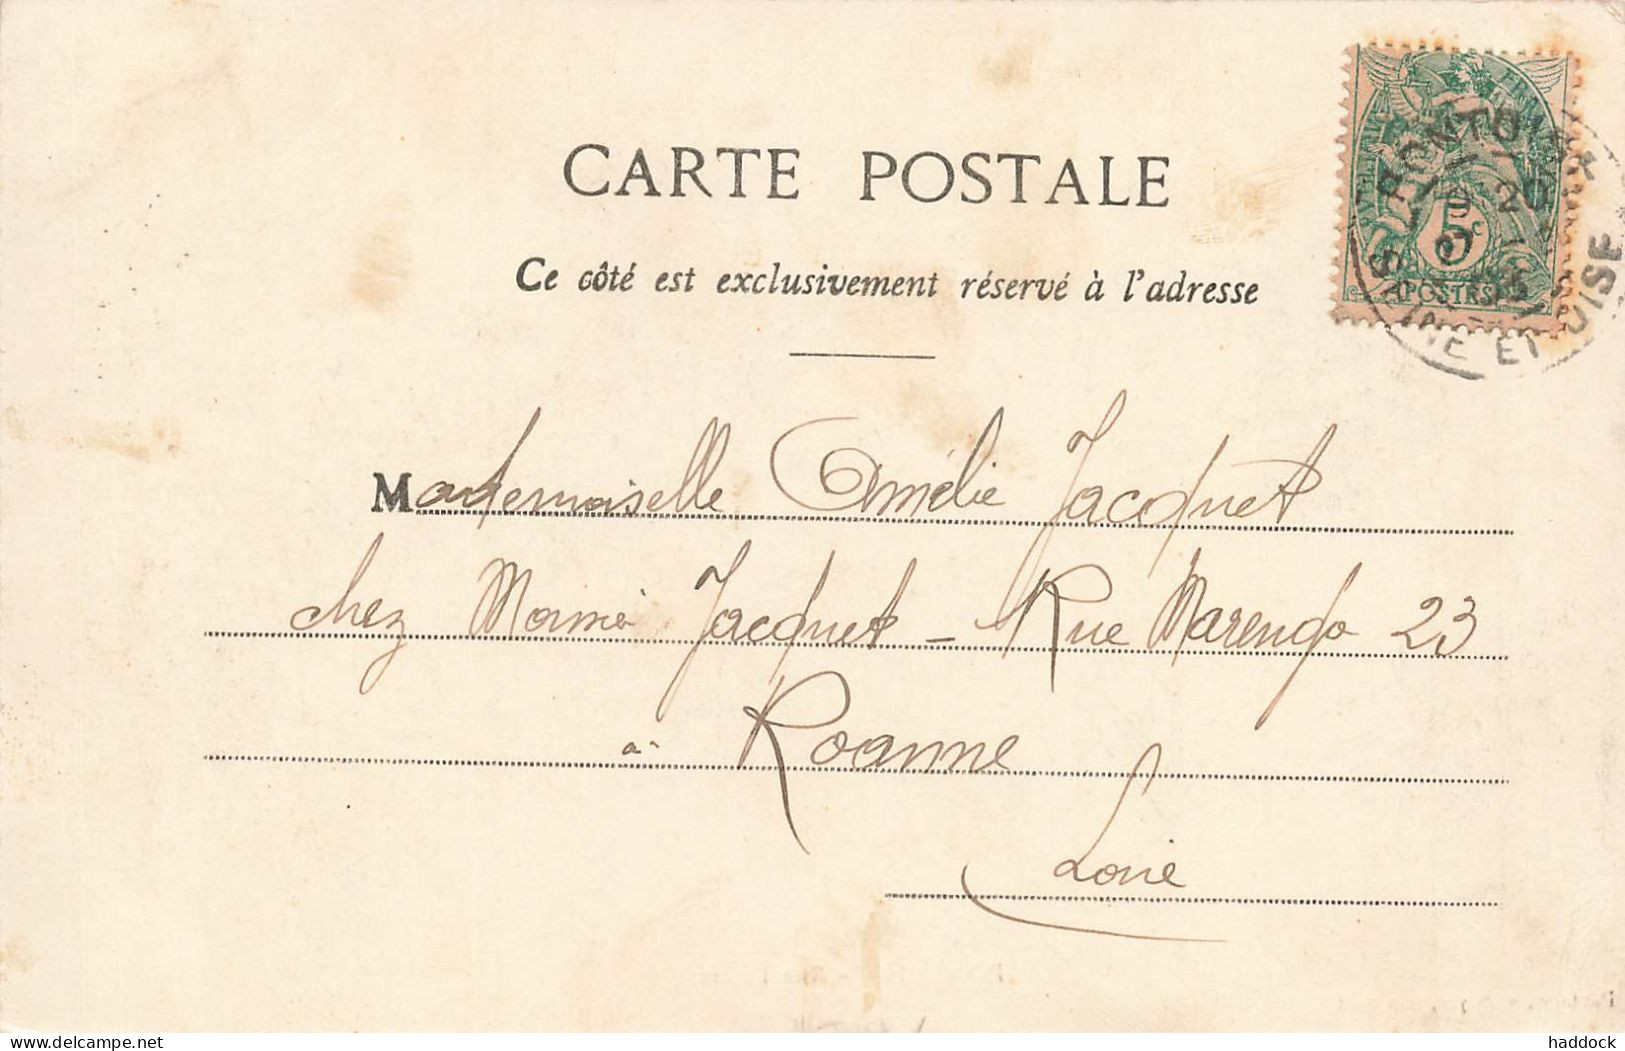 CARTE POSTALE
Ce côté est exclusivement réservé à l'adresse
5c
POSTES
SEINE ET OISE
Mademoiselle Amélie Jacquet
chez Mamé Jacquet - Rue Marengo 23
à Roanne
Loire
delcampe.net
haddock